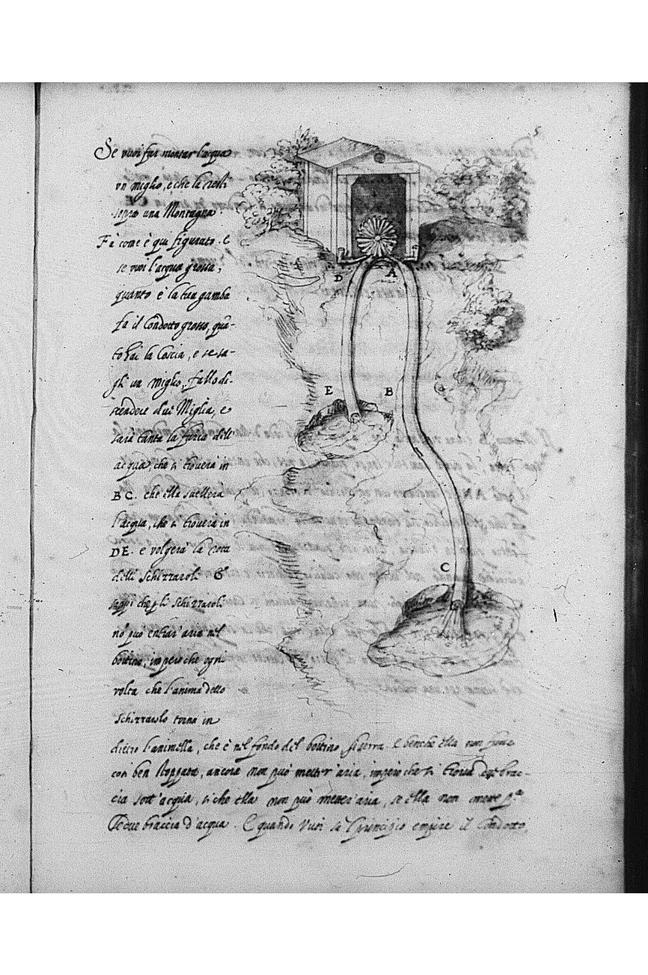 5
Se vuoi far montar l'acqua
un miglio, e che la crolli
sopra una Montagna
Fà come è qui figurato. E
se vuoi l'acqua grossa,
quanto è la tua gamba
fa il Condotto grosso, quā-
to hai la Coscia, e se sa-
gli un miglio, fallo di-
scendere dui Miglia, e
sarà tanta la forza dell'
acqua, che si troverà in
BC. che ella svellerà
l'acqua, che si troverà in
DE. e volgerà la
delli Schizzaroli. Et
sappi che p̱ li Schizzaroli
nō può entrar' aria nel
bottino, imperoche ogni
volta che l'anima dello
Schizzarolo torna in
dietro l'animella, che è nel fondo del bottino si serra. E benche ella non fusse
così ben stoppata, ancora non può metter' aria, impero che si trova due brac-
cia sott'acqua, si che ella non può metter' aria, se ella non mette pᵃ
le due braccia d'acqua. E quando vuoi da principio empire il Condotto
D
A
E
B
C